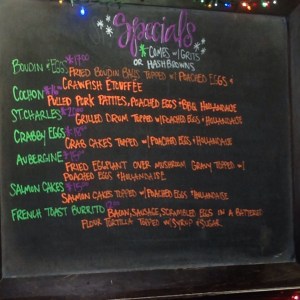 Specials
* COMES W/ GRITS
OR HASHBROWNS
BOUDIN & EGGS
FRIED BOUDIN BALLS TOPPED W/ POACHED EGGS &
CRAWFISH ETOUFFÉE
COCHON
PULLED PORK PATTIES, POACHED EGGS HOLLANDAISE
ST CHARLES
GRILLED DRUM TOPPED W/ POACHED EGGS & HOLLANDAISE
CRABBY EGGS
CRAB CAKES TOPPED W/ POACHED EGGS & HOLLANDAISE
AUBERGINE
FRIED EGGPLANT OVER MUSHROOM GRAVY TOPPED W/
POACHED EGGS & HOLLANDAISE
SALMON CAKES
SALMON CAKES TOPPED W/ POACHED EGGS & HOLLANDAISE
FRENCH TOAST BURRITO BACON, SAUSAGE, SCRAMBLED EGGS IN A BATTERED
FLOUR TORTILLA TOPPED W/ SYRUP & SUGAR